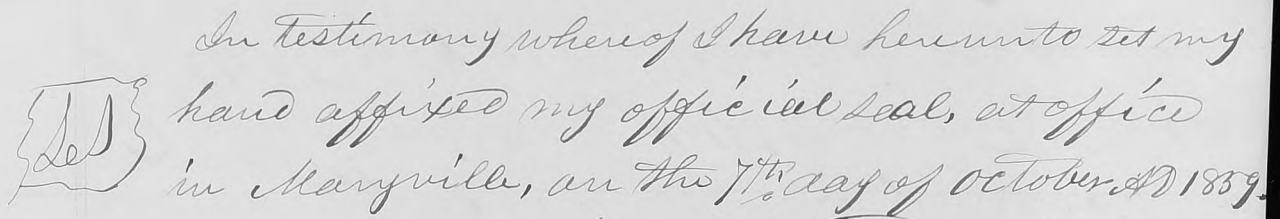 In testimony whereof I have hereunto set my
hand affixed my official seal, at office
in Maryville, on the 7th day of October AD 1859.